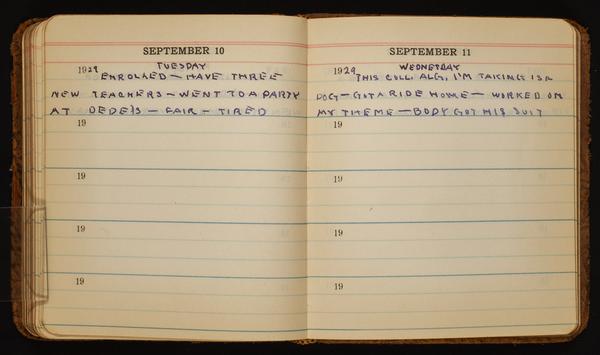 SEPTEMBER 10
TUESDAY
1929 ENROLLED — HAVE THREE
NEW TEACHERS — WENT TO A PARTY
AT DEDE'S — FAIR — TIRED
19
19
19
19
SEPTEMBER 11
WEDNESDAY
1929 THIS COLL. ALG. I'M TAKING IS A
DOG — GOT A RIDE HOME — WORKED ON
MY THEME — BODY GOT HIS SUIT
19
19
19
19